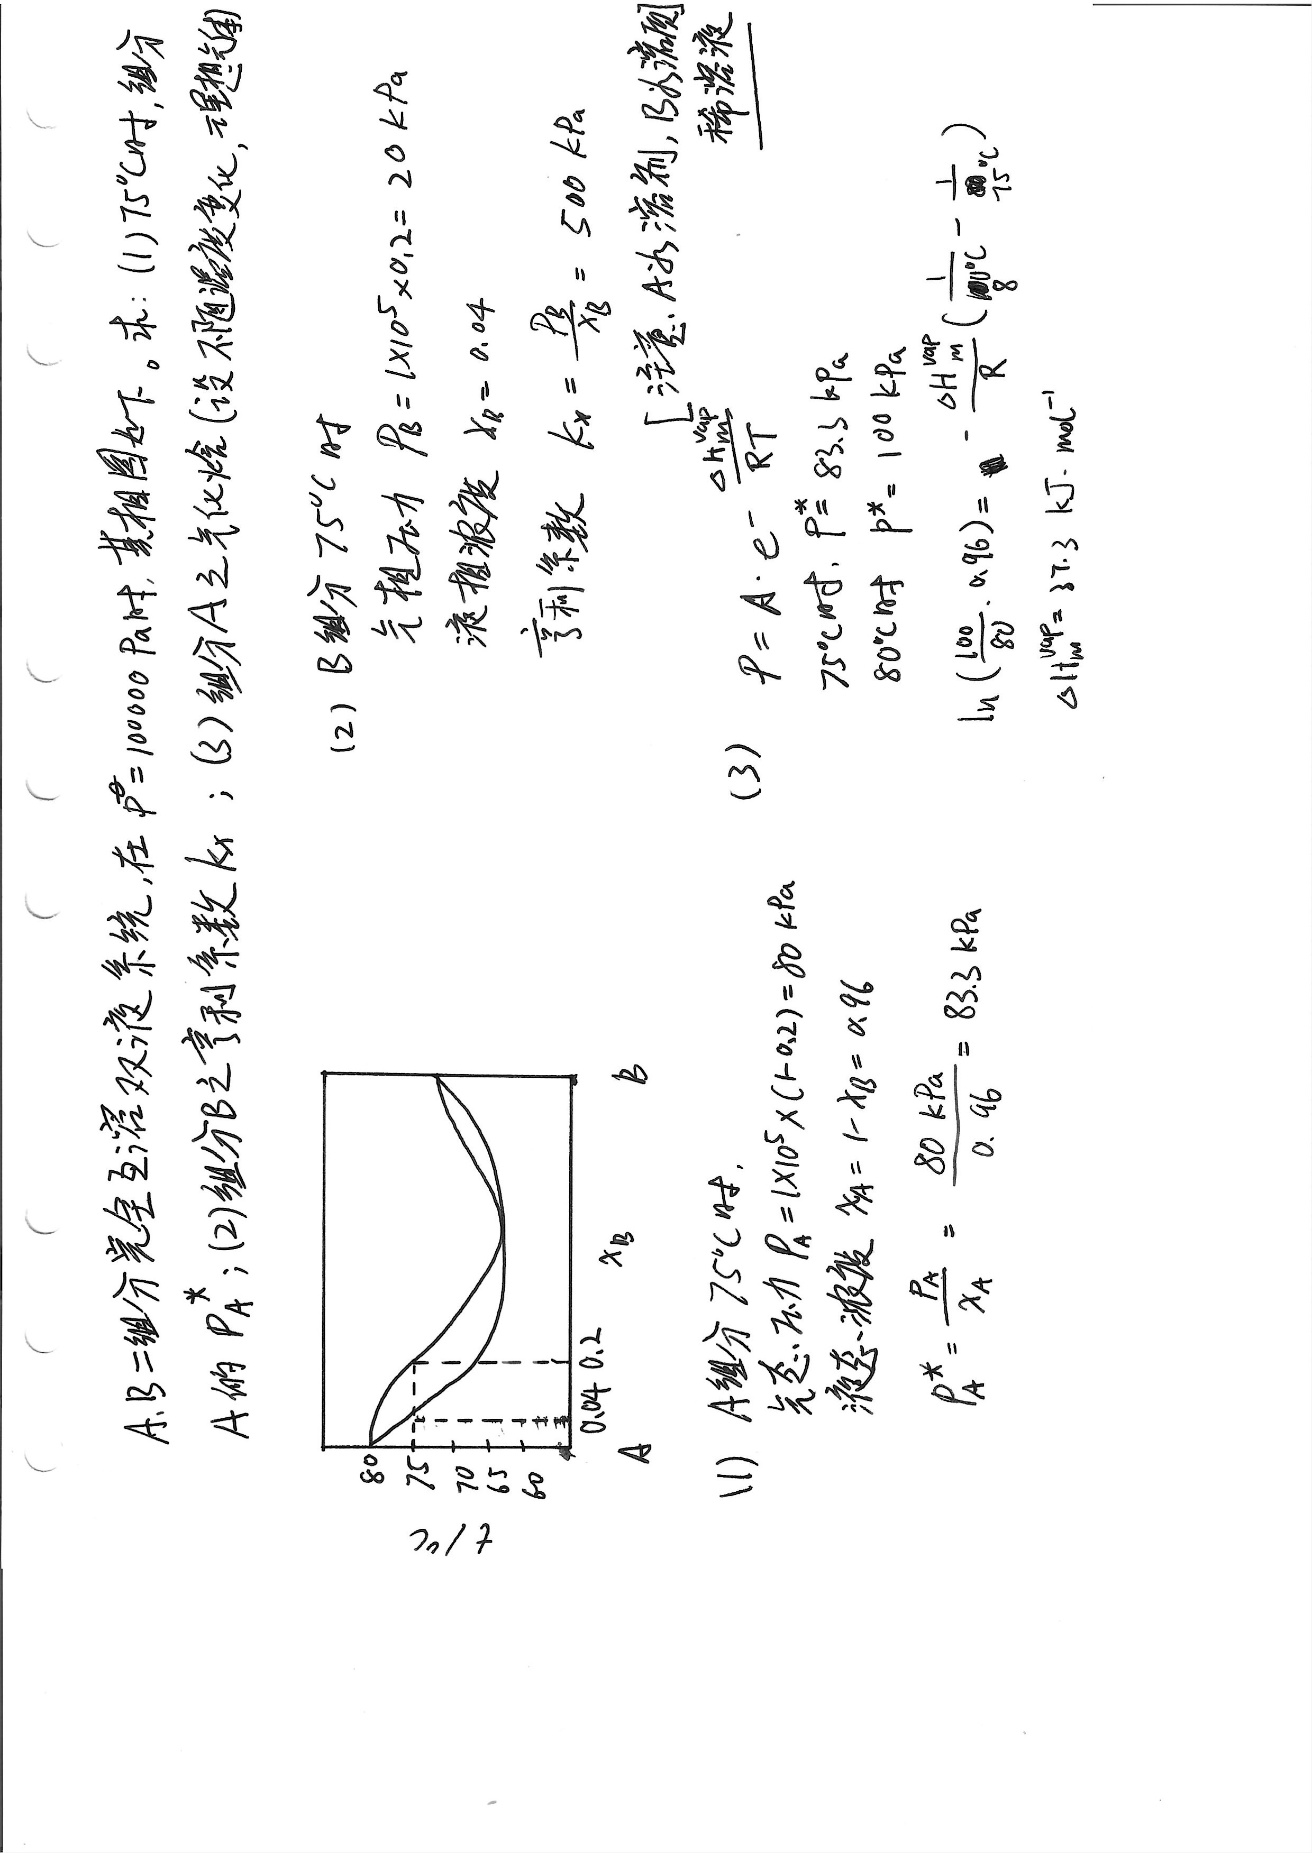 A.B二组分完全互溶双液系统,在 p^θ=100000 Pa时,其相图如下。求:(1)75℃时,组分
A的 P_A^*;(2)组分B之亨利系数kx;(3)组分A之气化焓(设不随温度变化,理想气体)
t/℃
80
75
70
65
60
A 0.04 0.2 x_B B
(1) A组分 75℃时,
气态压力 P_A=1×10^5×(1-0.2)=80 kPa
液态浓度 x_A=1-x_B=0.96
P_A^* = P_A/x_A = 80 kPa/0.96 = 83.3 kPa
(2) B组分 75℃时
气相压力 P_B=1×10^5×0.2=20 kPa
液相浓度 x_B=0.04
亨利系数 kx = P_B/x_B = 500 kPa
[注意.A为溶剂,B为溶质]
稀溶液
(3) P=A·e^-ΔH_m^vap/RT
75℃时.P^*=83.3 kPa
80℃时 P^*=100 kPa
ln(100/80·0.96)= -ΔH_m^vap/R(1/80℃ - 1/75℃)
ΔH_m^vap=37.3 kJ·mol^-1